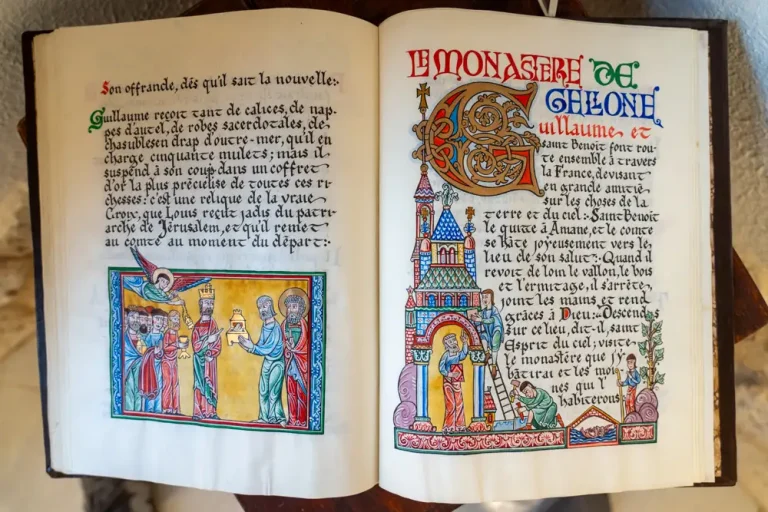 Son offrande, dès qu'il sait la nouvelle:.
Guillaume reçoit tant de calices, de nap-
pes d'autel, de robes sacerdotales, de
chasubles en drap d'outre-mer, qu'il en
charge cinquante mulets; mais il
suspend à son cou p dans un coffret
d'or la plus précieuse de toutes ces ri-
chesses: c'est une relique de la vraie
Croix, que Louis reçut jadis du patri-
arche de Jérusalem, et qu'il remet
au comte au moment du départ:.
LE MONASTERE DE
GELLONE
Guillaume et
saint Benoît font rou-
te ensemble à travers
la France, devisant
en grande amitié
sur les choses de la
terre et du ciel:. Saint Benoît
le quitte à Aniane, et le comte
se hâte joyeusement vers le
lieu de son salut:. Quand il
revoit de loin le vallon, le bois
et l'ermitage, il s'arrête,
joint les mains et rend
grâces à Dieu:. Descend
sur ce lieu, dit-il, saint
Esprit du ciel; visite
le monastère que j'y
bâtirai et les moi-
nes qui l'
habiterons